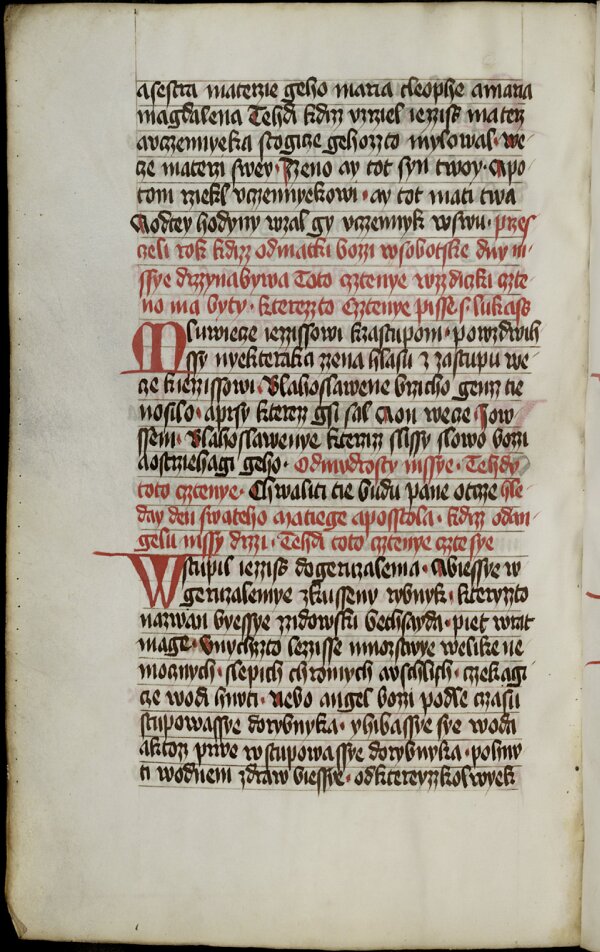 asestra materzie geho maria cleophe amaria
magdalena Tehda kdyz vzrziel iezzissſ materz
avczennyeka stogicze gehozzto mylowal· we-
cze materzi swey· Zzeno ay tot syn twoy· Apo
tom rziekl vczennyekowi· ay tot mati twa
Aodtey hodyny wzal gy vczennyk wswu· przes
czeli rok kdyz odmatki bozzi wsobotske dny m-
ssye drzynabywa Toto cztenye wzzdiczki czte-
no ma byty· kterezzto cztenye pisse s· lukass
Mluwiecze iezzissowi kzastupom· powzdwih
ssy nyekteraka zzena hlasu z zastupu we-
cze kiezzissowi· blahoslawene brzicho genz tie
nosilo· aprsy kterez gsi sal Aon wecze Iow
ssem· blahoslawenye kterzizz slissy slowo bozi
aostrziehagi geho· Odmudrosty mssye· Tehdy
toto cztenye· Chwaliti tie budu pane otcze hle-
day den swateho matiege aposstola· kdyz odan-
gelu mssy drzi· Tehda toto cztenye cztesye
Wstupil iezziss dogeruzalema· Abiessye w
geruzalemye zkussseny rybnyk· kteryzzto
nazwan byessye zzidowski bethsayda· piet wrat
magie· Vnychzzto lezzisse mnozstwye welike ne
mocznych· slepich chromych aoschlich· czekagi
cze wodi hnuti· nebo angel bozi podle czasu
stupowassye dorybnyka· yhibassye sye woda
aktoz prwe wstupowassye dorybnyka· pohnu
ti wodnem zdraw biessye· odktereyzzkolwyek